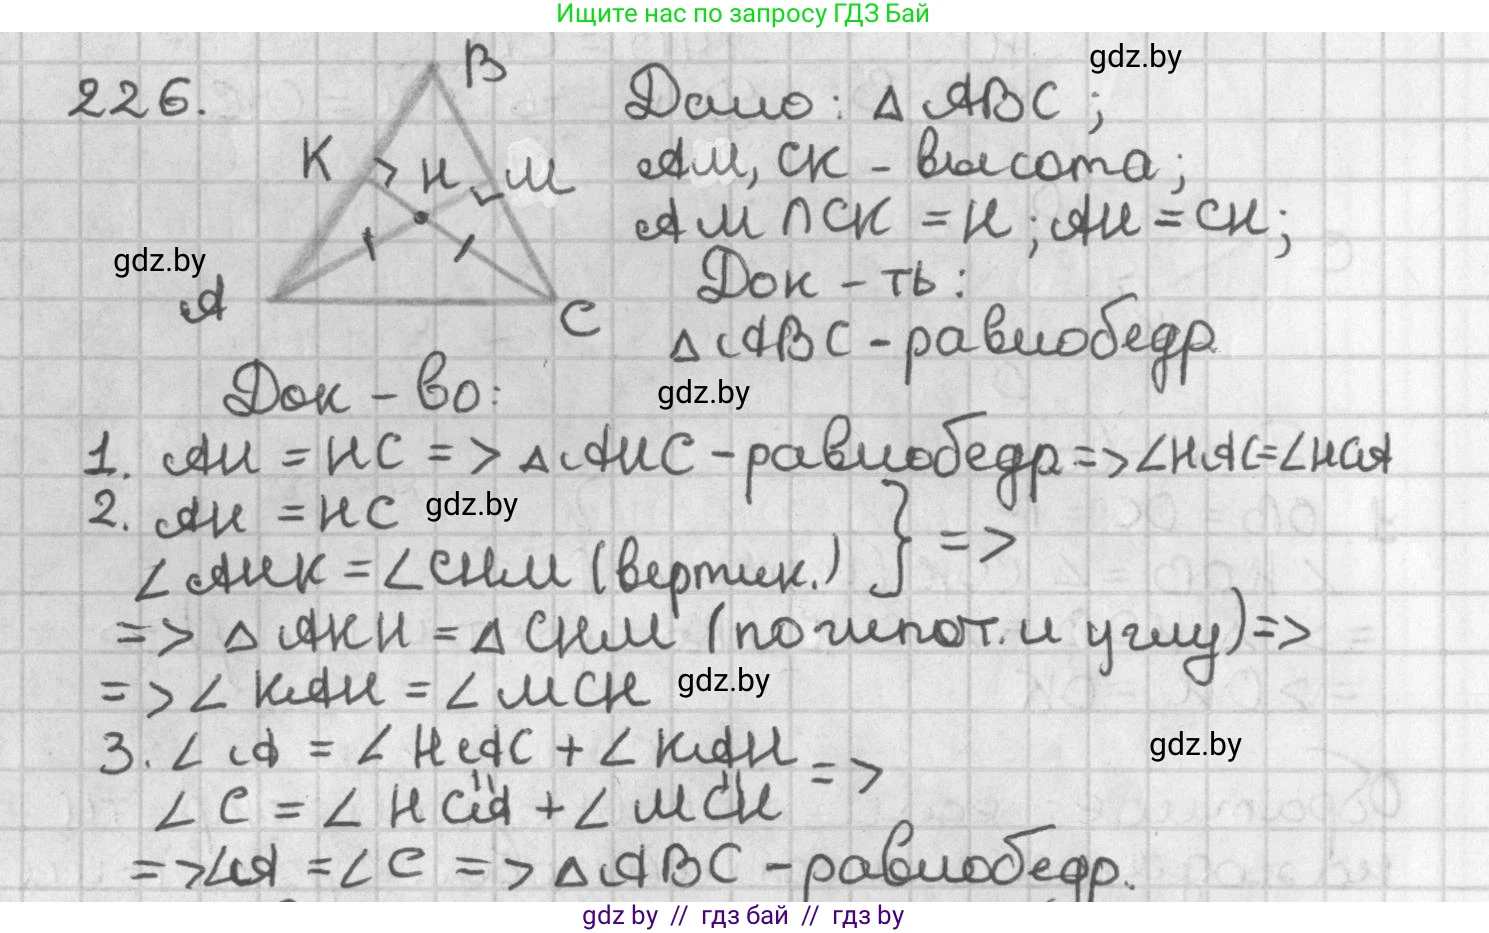 Ищите нас по запросу ГДЗ Бай
226.
B
K
H
M
A
C
gdz.by
gdz.by
Дано: △ ABC ;
AM, CK - высота;
AM ∩ CK = H ; AH = CH;
Док - ть:
△ ABC - равнобедр.
Док - во:
gdz.by
1. AH = HC => △ AHC - равнобедр => ∠HAC=∠HCA
2. AH = HC
gdz.by
∠AHK = ∠CHM (вертик.) } =>
=> △ AKH = △ CHM (по гипот. и углу) =>
=> ∠ KAH = ∠ MCH
gdz.by
3. ∠ A = ∠ HAC + ∠ KAH
gdz.by
∠ C = ∠ HCA + ∠ MCH =>
=> ∠A = ∠ C => △ ABC - равнобедр.
gdz by // гдз бай // гдз by